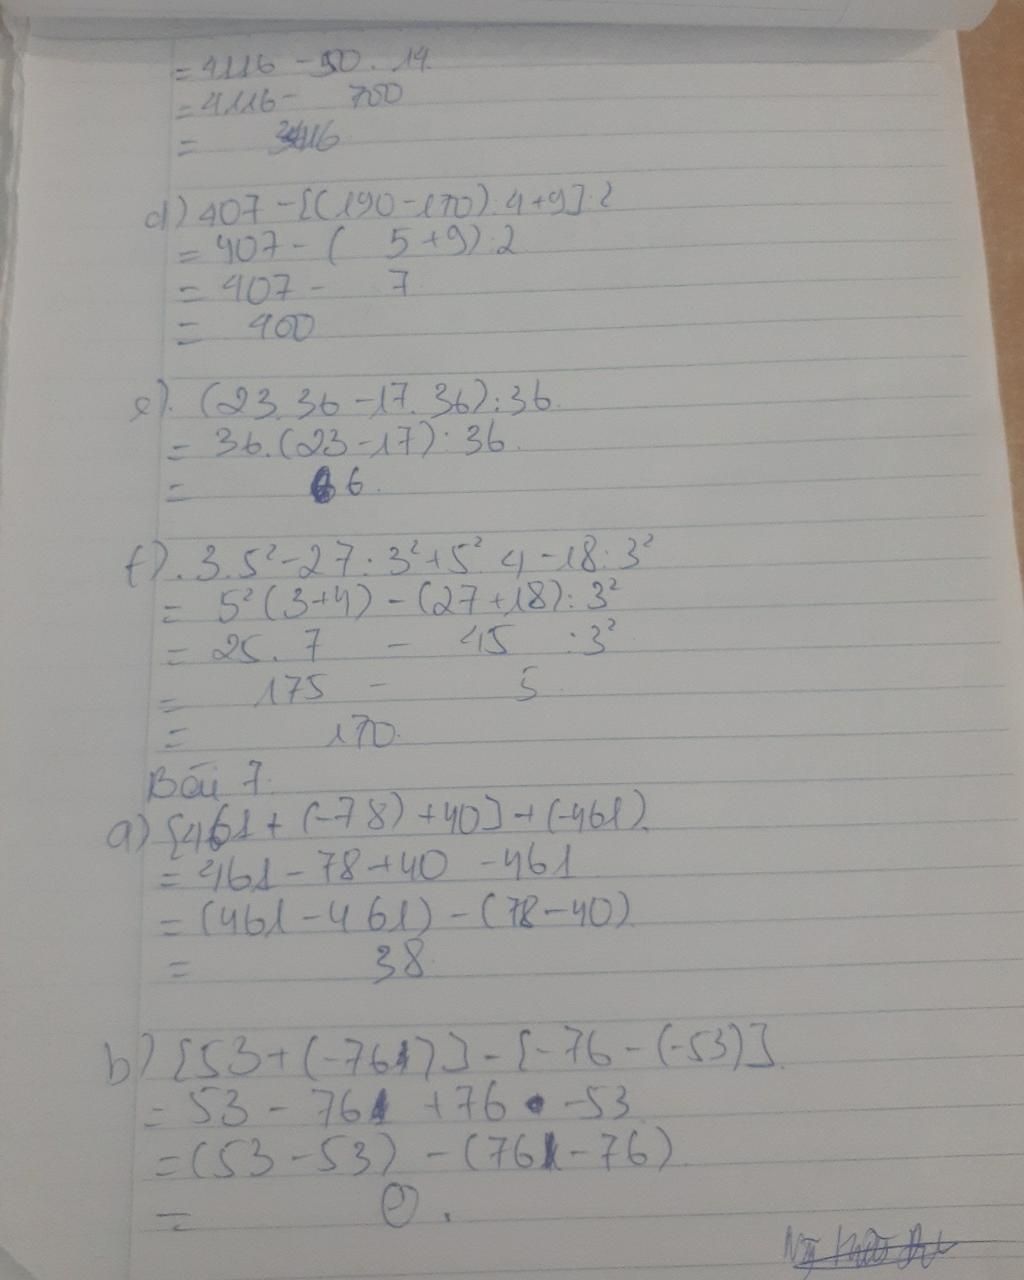 = 4116 - 50. 14
= 4116 - 700
= 3416
d) 407 - [(190-170):4+9]:2
= 407 - ( 5+9):2
= 407 - 7
= 400
e). (23.36-17.36):36.
= 36.(23-17):36.
= 6.
f). 3.5²-27:3²+5².4-18:3²
= 5²(3+4) - (27+18):3²
= 25.7 - 45 :3²
= 175 - 5
= 170.
Bài 7.
a) [461 + (-78) +40] + (-461).
= 461 - 78 + 40 - 461
= (461-461) - (78-40)
= 38.
b) [53+(-76)] - [-76-(-53)].
= 53 - 76 + 76 - 53
= (53-53) - (76-76)
= 0.